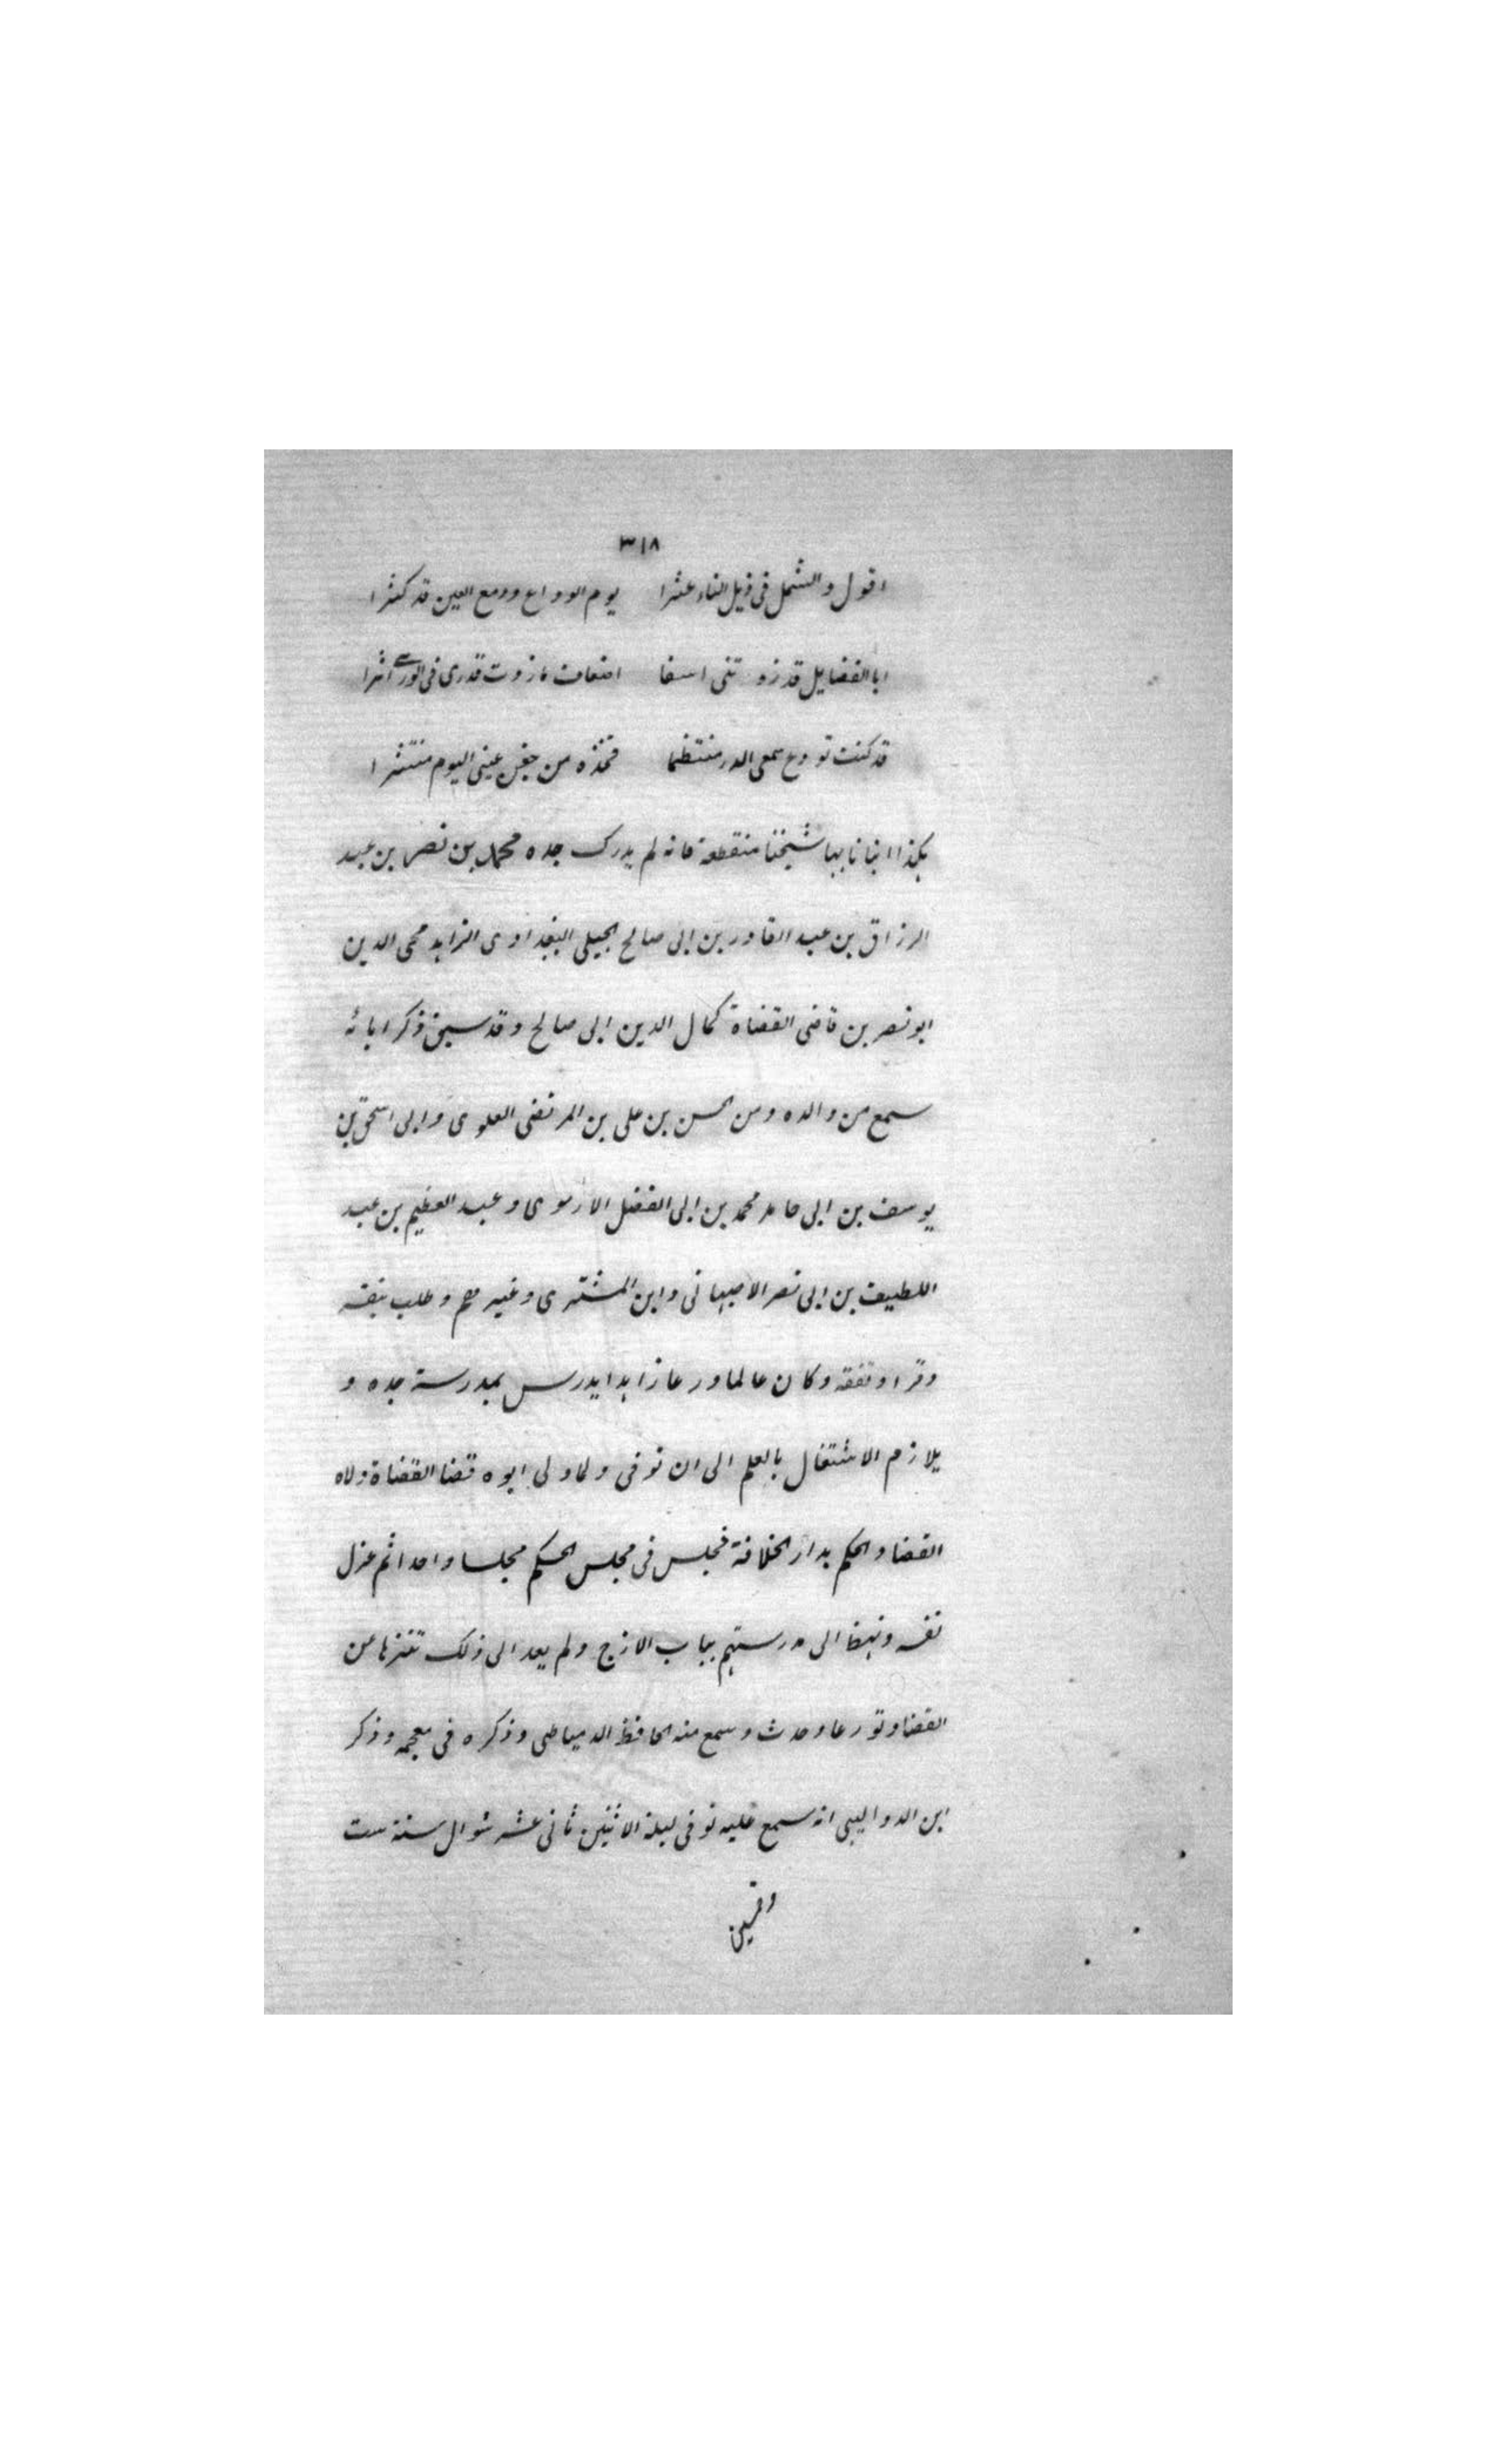 ٣١٨
اقول والشمل فى ذيل النناء عثرا يوم الوداع ودمع العين قد كثرا
ابا الفضايل قد زودتنى اسفا اضعاف ما زدت قدرى فى الورى اثرا
قد كنت تودع سمعى الدر منتظما فخذه من جفن عينى اليوم منتثرا
هكذا انبانا بها شيخنا منقطعة فانه لم يدرك جده محمد بن نصر بن عبد
الرزاق بن عبد القادر بن ابى صالح الجيلى البغدادى الزاهد محى الدين
ابو نصر بن قاضى القضاة كمال الدين ابى صالح وقد سبق ذكر ابائه
سمع من والده ومن الحسن بن على بن المرتضى العلوى وابى اسحق بن
يوسف بن ابى حامد محمد بن ابى الفضل الارموى وعبد العظيم بن عبد
اللطيف بن ابى نصر الاصبهانى وابن المشترى وغيرهم وطلب بنفسه
وقرا وتفقه وكان عالما ورعا زاهدا يدرس بمدرسة جده و
يلازم الاشتغال بالعلم الى ان توفى ولما ولى ابوه قضا القضاة ولاه
القضا والحكم بدار الخلافة فجلس فى مجلس الحكم مجلسا واحدا ثم عزل
نفسه ونهضا الى مدرستهم بباب الازج ولم يعد الى ذلك تنزها عن
القضا وتورعا وحدث وسمع منه الحافظ الدمياطى وذكره فى معجمه وذكر
ابن الدواليبى انه سمع عليه توفى ليلة الاثنين ثانى عشر شوال سنة ست
وخمسين